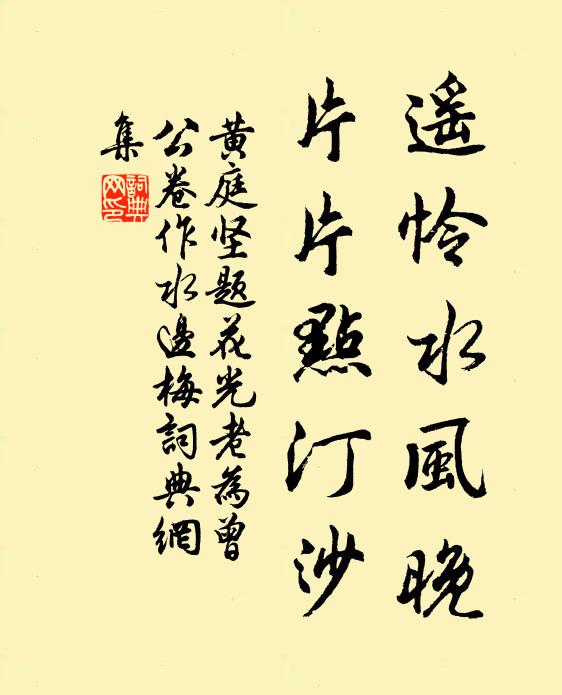 遥怜水風晚
片片點汀沙
黄庭坚題花光老為曾
公卷作水邊梅詞典網
集
詞典
网印